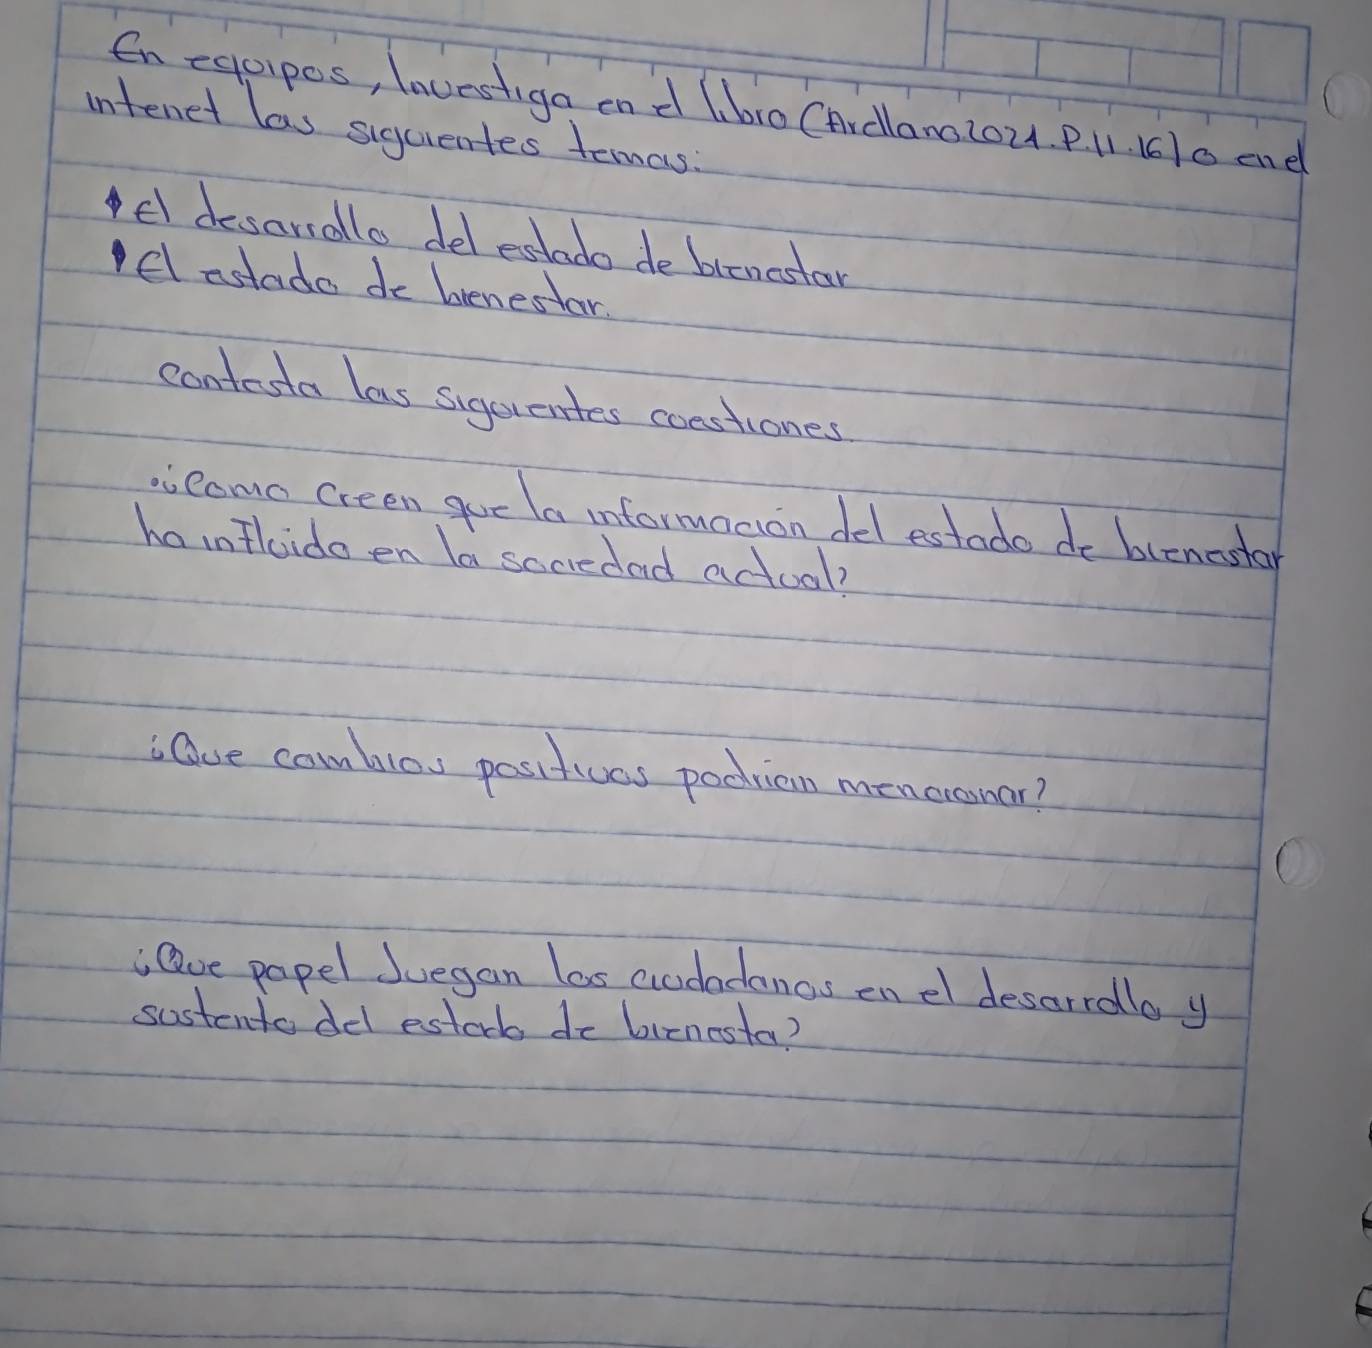 En equipos, Investiga en el libro (Arellano 2021. P.11.16) o en el
intenet las siguientes temas:
El desarrollo del estado de bienestar
El estado de bienestar.
contesta las siguientes cuestiones
¿Como creen que la información del estado de bienestar
ha influido en la sociedad actual?
¿Que cambios positivos podrian mencionar?
¿Que papel Juegan los ciudadanos en el desarrollo y
sustento del estado de bienesta?